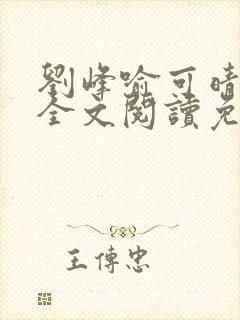 劉峰喻可晴
全文閱讀免
王傳忠